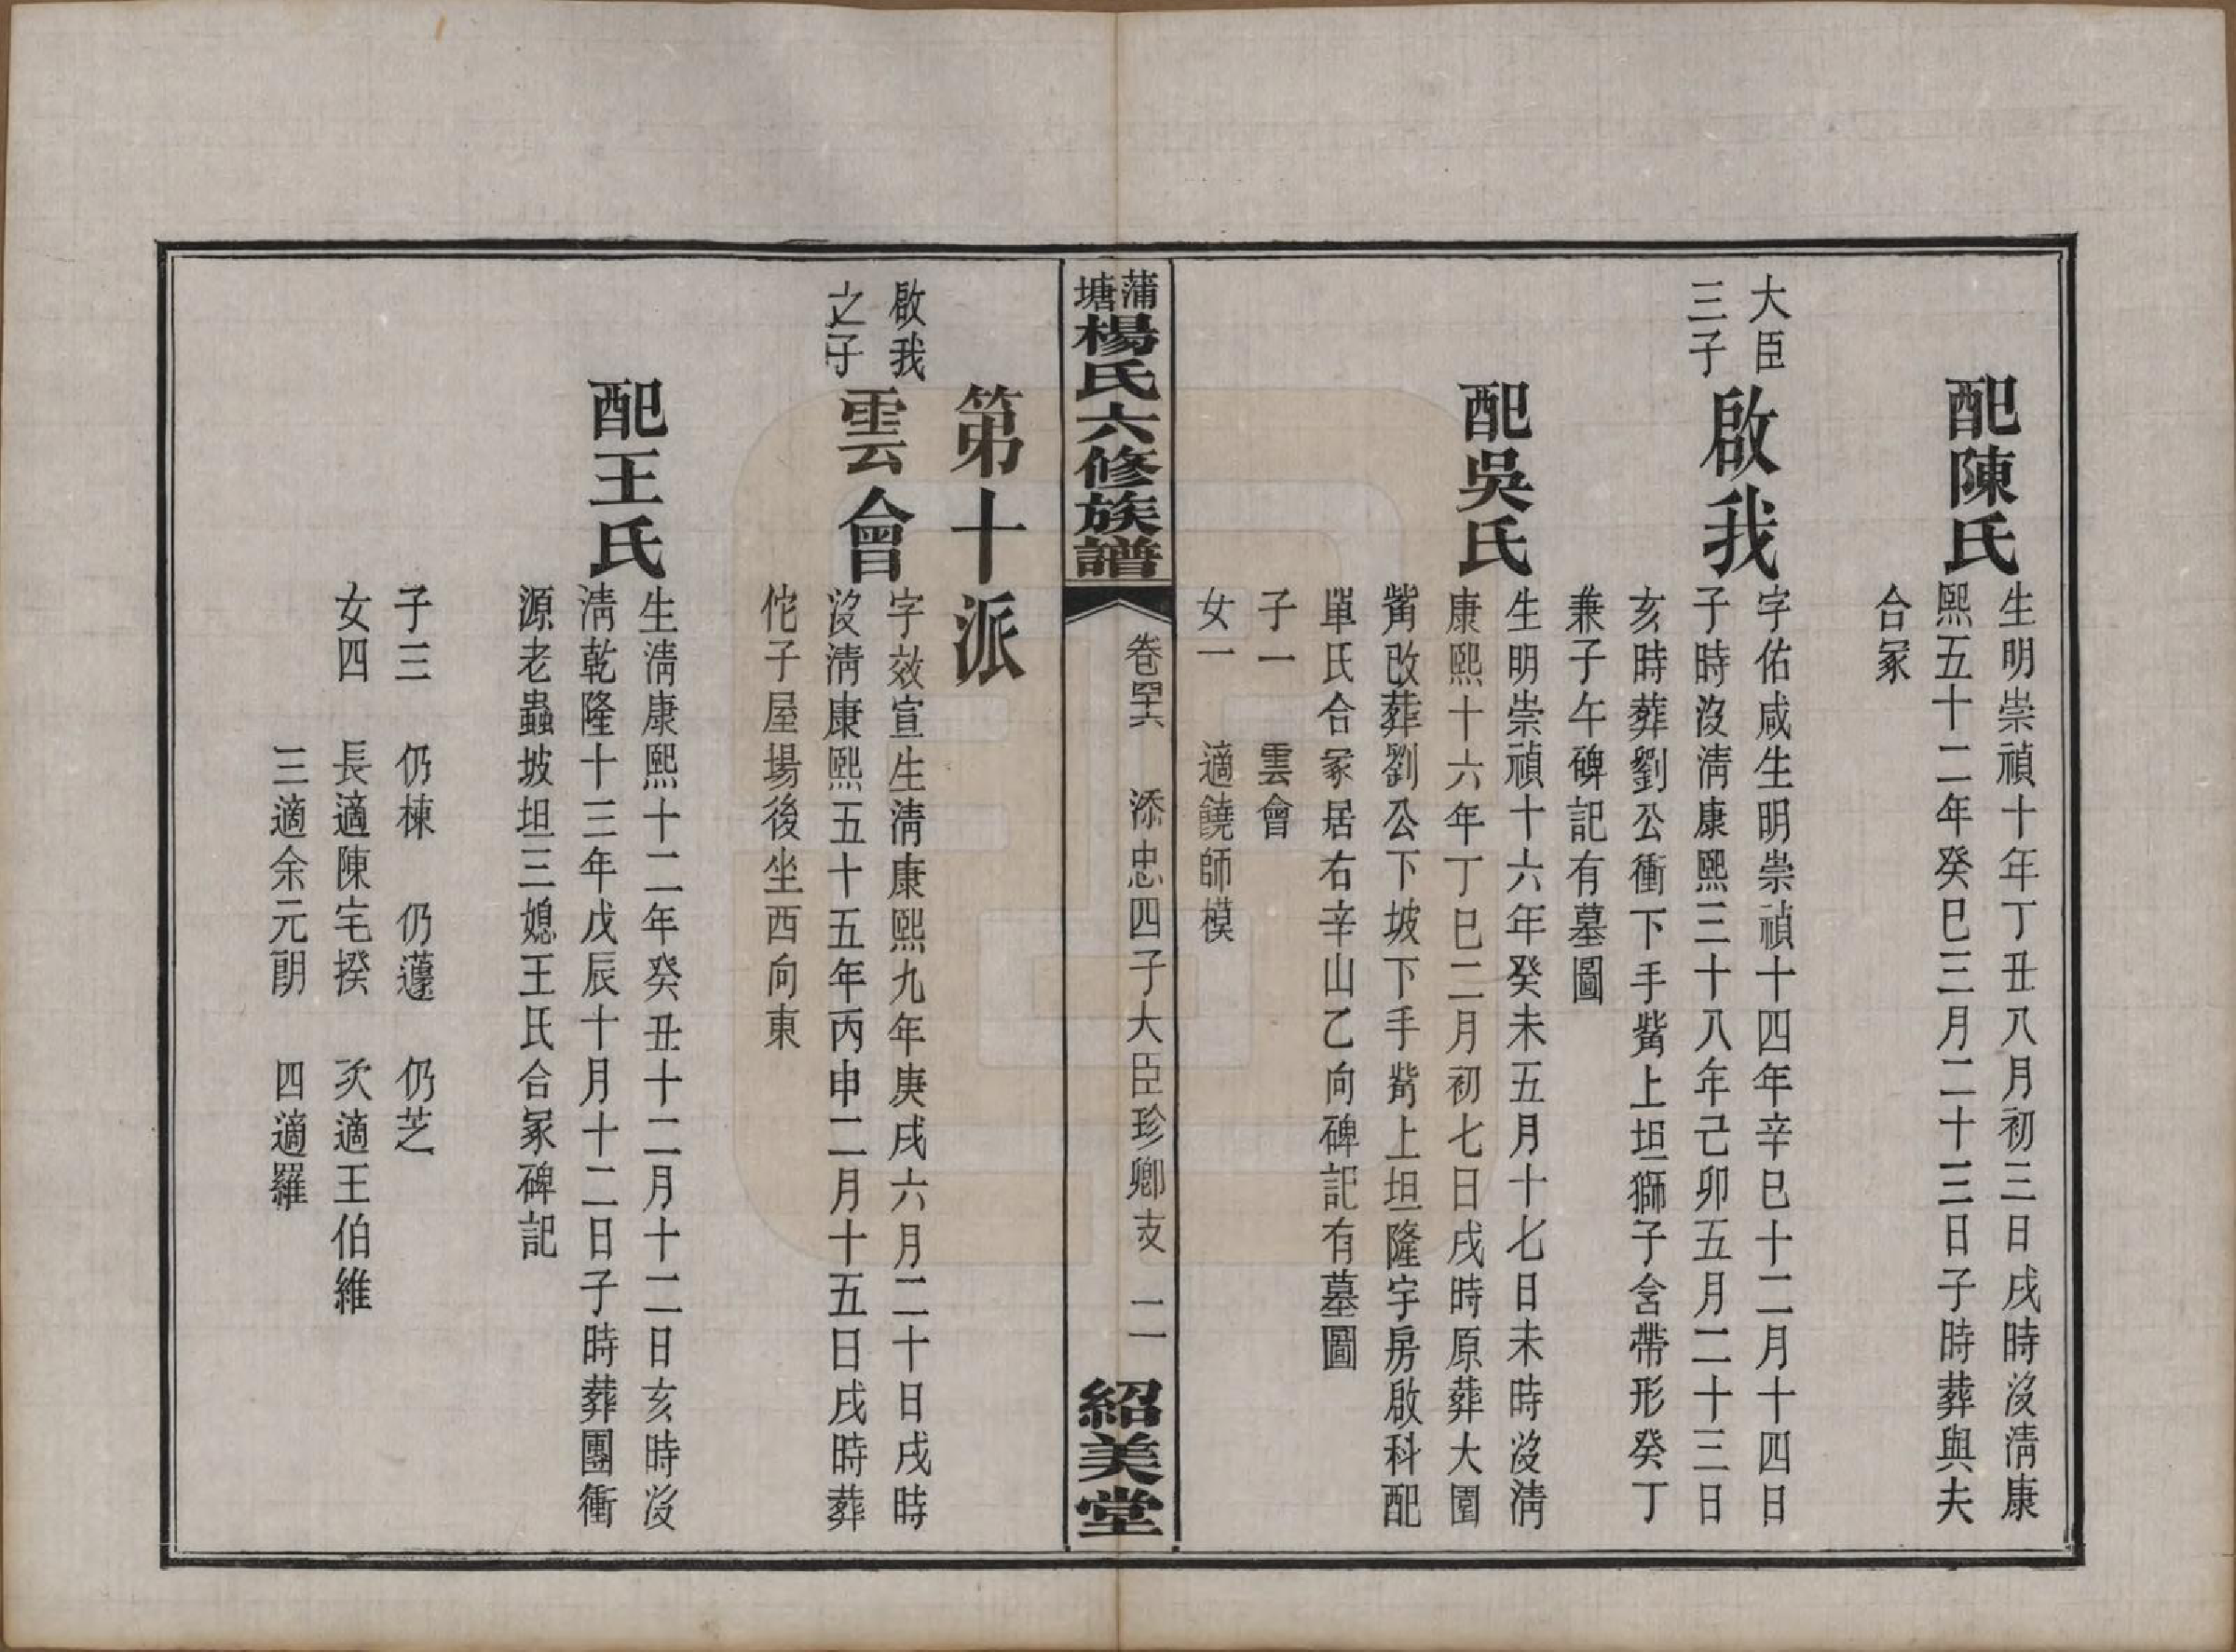 配陳氏
生明崇禎十年丁丑八月初三日戌時沒清康
熙五十二年癸巳三月二十三日子時葬與夫
合冢
大臣
三子
啟我
字佑咸生明崇禎十四年辛巳十二月十四日
子時沒清康熙三十八年己卯五月二十三日
亥時葬劉公衝下手觜上坦獅子含帶形癸丁
兼子午碑記有墓圖
配吳氏
生明崇禎十六年癸未五月十七日未時沒清
康熙十六年丁巳二月初七日戌時原葬大園
觜改葬劉公下坡下手觜上坦隆宇房啟科配
單氏合冢居右辛山乙向碑記有墓圖
子一　雲會
女一　適饒師模
蒲塘楊氏六修族譜
卷四十六　添忠四子大臣珍卿支　一一
紹美堂
第十派
啟我
之子
雲會
字效宣生清康熙九年庚戌六月二十日戌時
沒清康熙五十五年丙申二月十五日戌時葬
佗子屋場後坐西向東
配王氏
生清康熙十二年癸丑十二月十二日亥時沒
清乾隆十三年戊辰十月十二日子時葬團衝
源老蟲坡坦三媳王氏合冢碑記
子三　仍棟　仍蘧　仍芝
女四　長適陳宅揆　次適王伯維
三適余元朗　四適羅